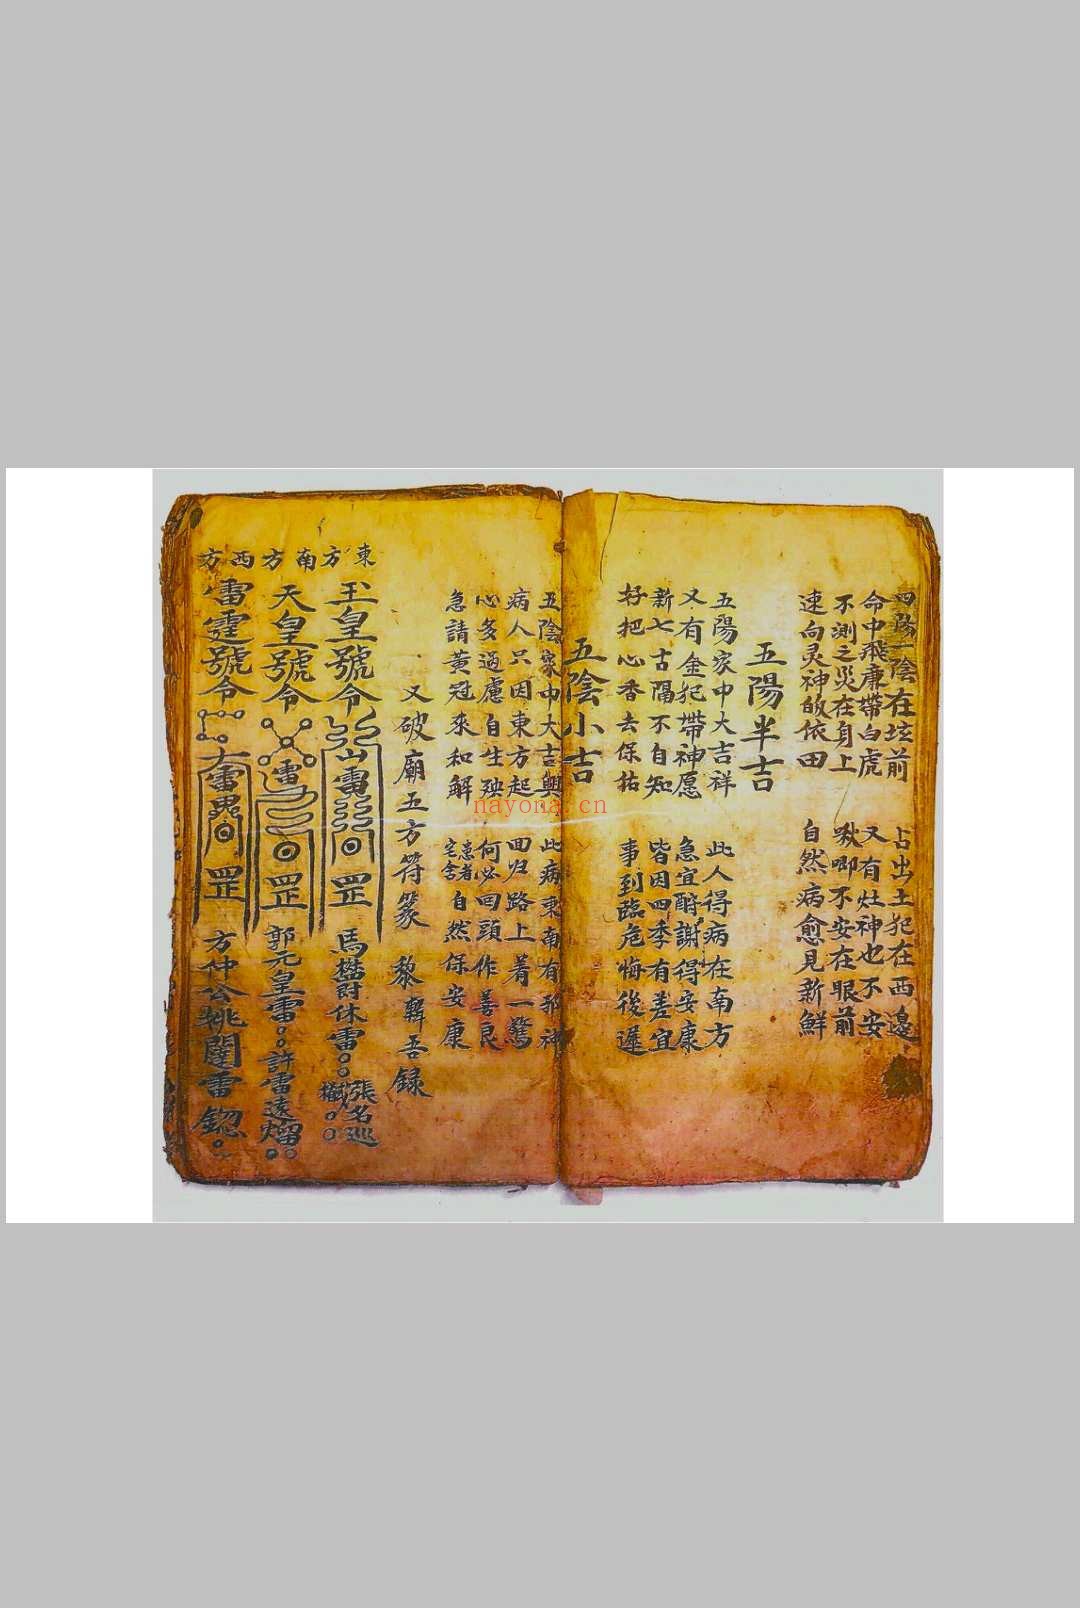 四陽一陰在垓前 占出土犯在西邊
命中飛廉帶白虎 又有灶神也不安
不測之災在身上 啾唧不安在眼前
速向灵神皈依田 自然病愈見新鮮
五陽半吉
五陽家中大吉祥 此人得病在南方
又有金犯帶神愿 急宜酧謝得安康
新七古隔不自知 皆因四季有差宜
好把心香去保祐 事到臨危悔後遲
五陰小吉
五陰家中大吉興 此病東南有邪神
病人只因東方起 回归路上着一驚
心多過慮自生殃 何必回頭作善良
急請黃冠來和解 患者宅舍自然保安康
又破廟五方符篆 黎韓吾錄
東方
玉皇號令
雷
罡
馬 休雷
張名巡
南方
天皇號令
雷
罡
郭元皇雷 許雷遠
西方
雷霆號令
雷
罡
方仲公 雷
nayona.cn